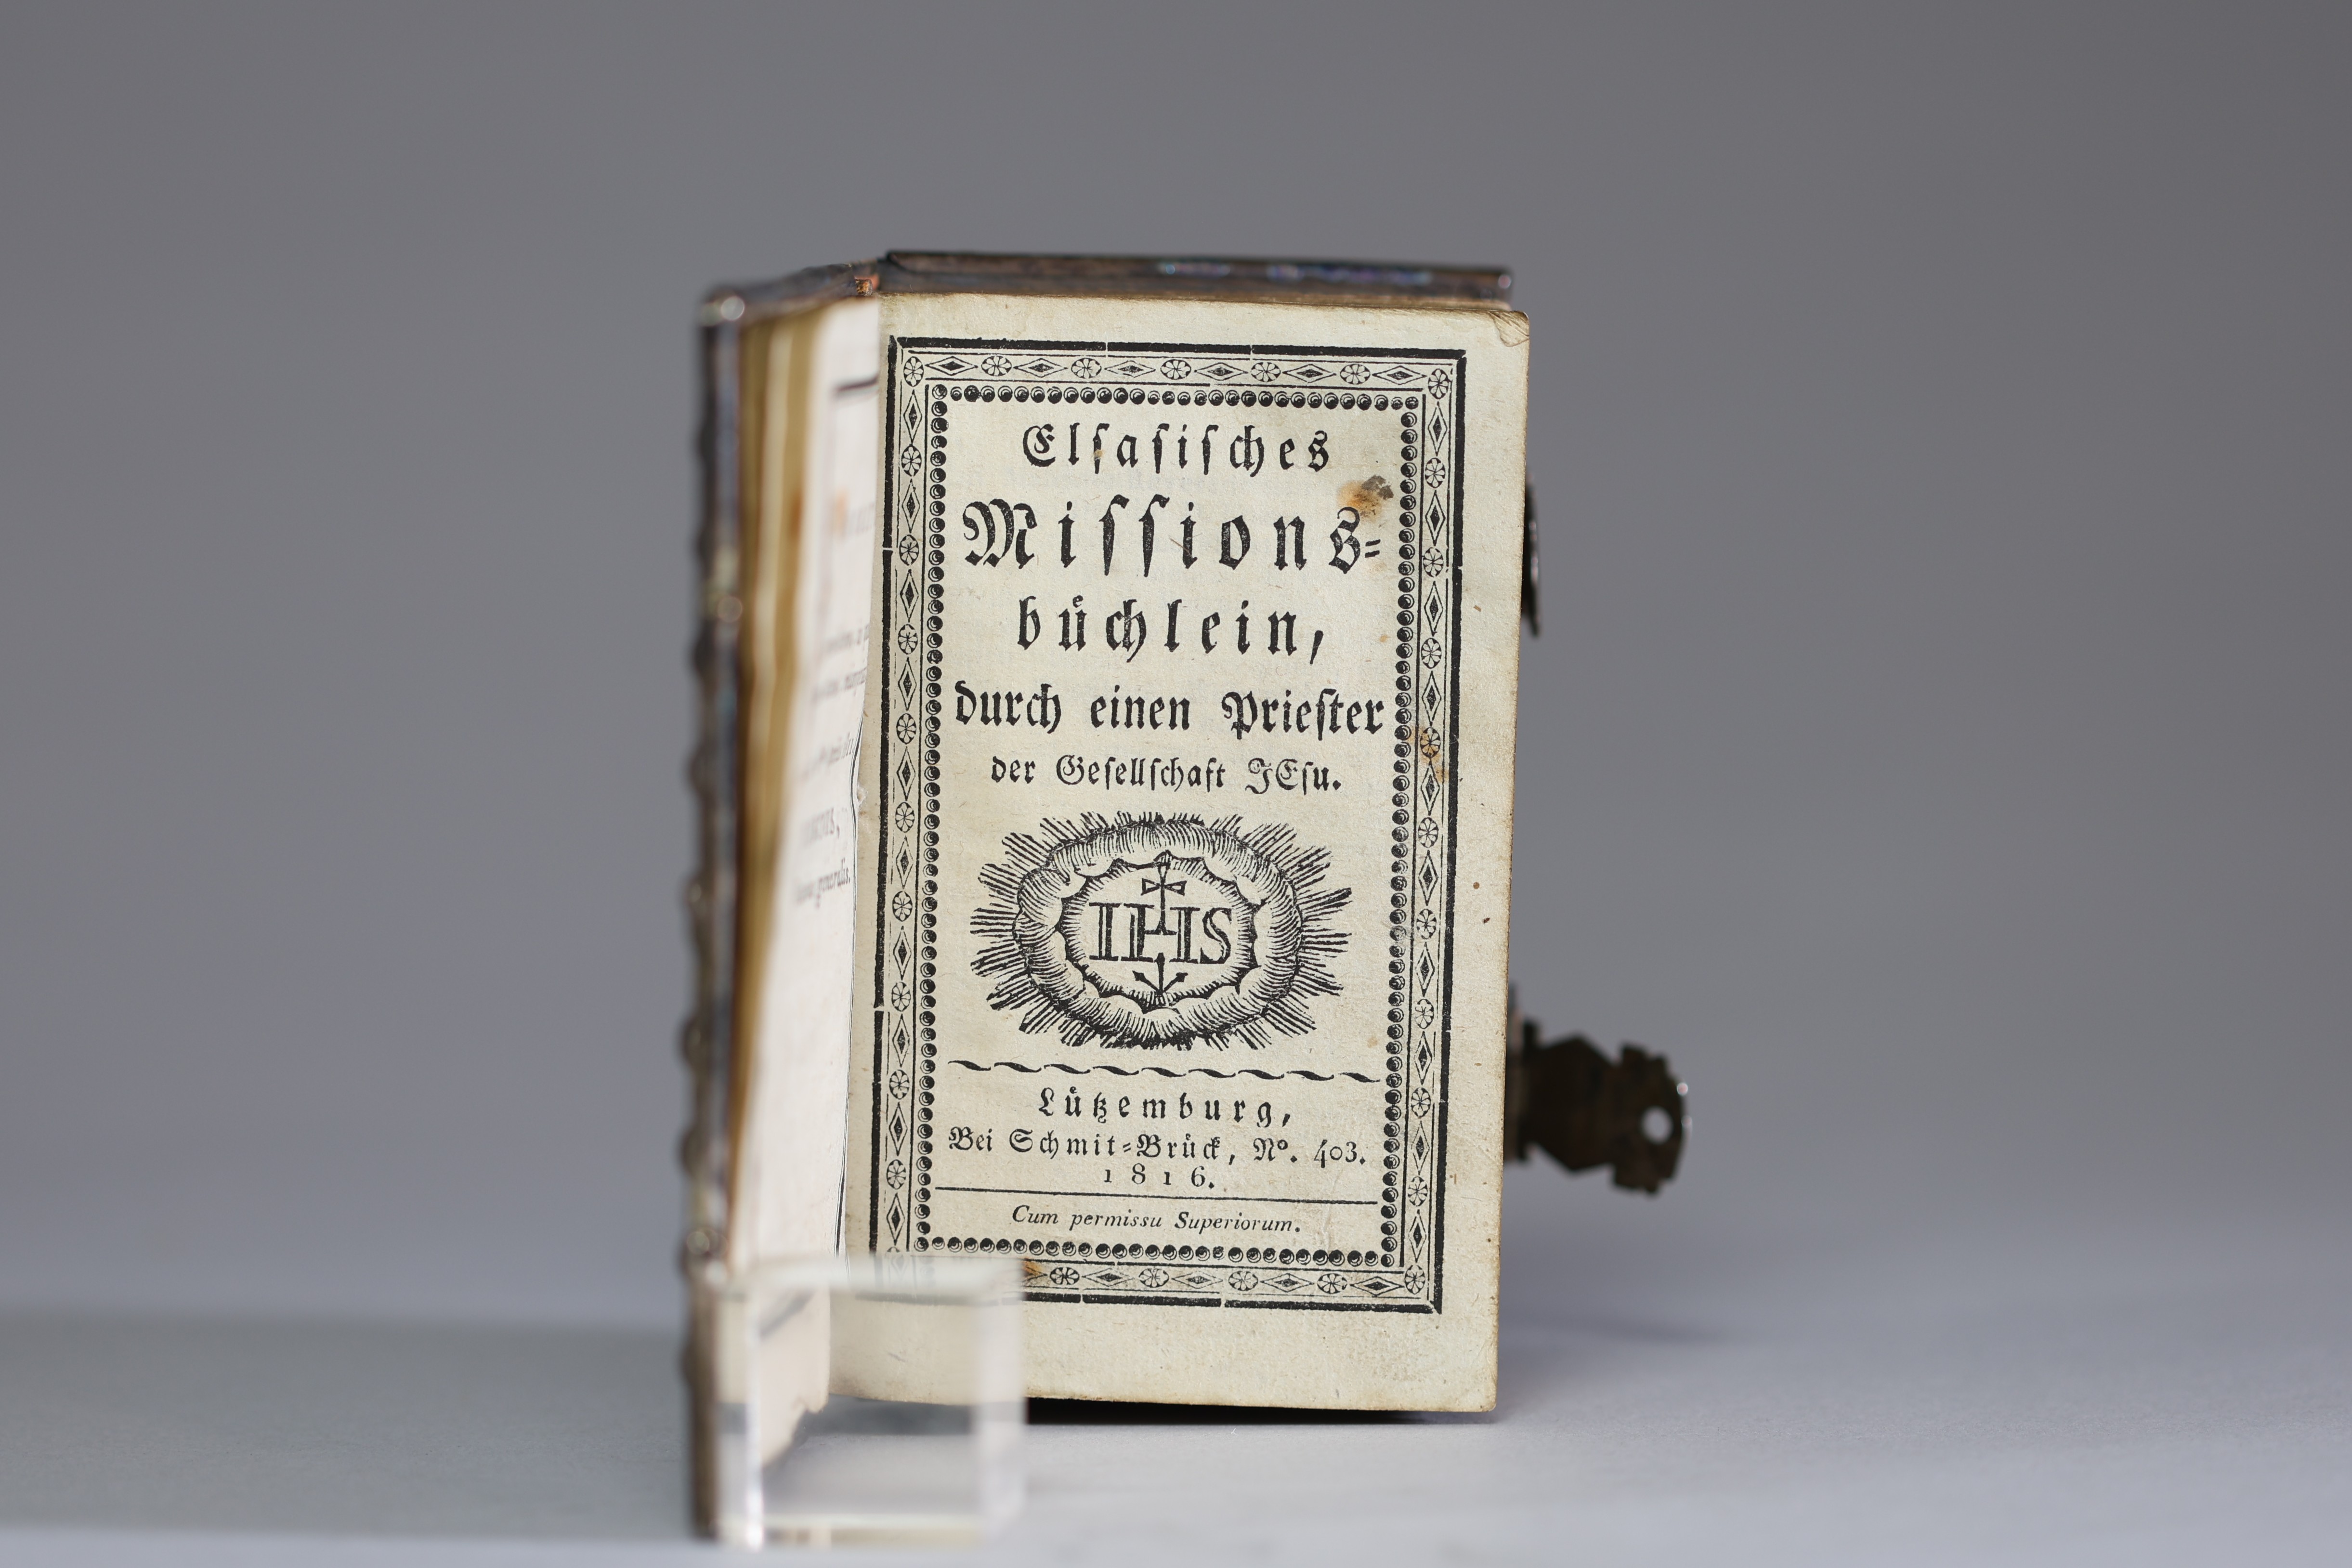 Elſaſiſches
Miſſions⸗
buͤchlein,
durch einen Prieſter
der Geſellſchaft JEſu.
IHS
Luͤtzemburg,
Bei Schmit⸗Bruͤck, Nº. 403.
1816.
Cum permissu Superiorum.